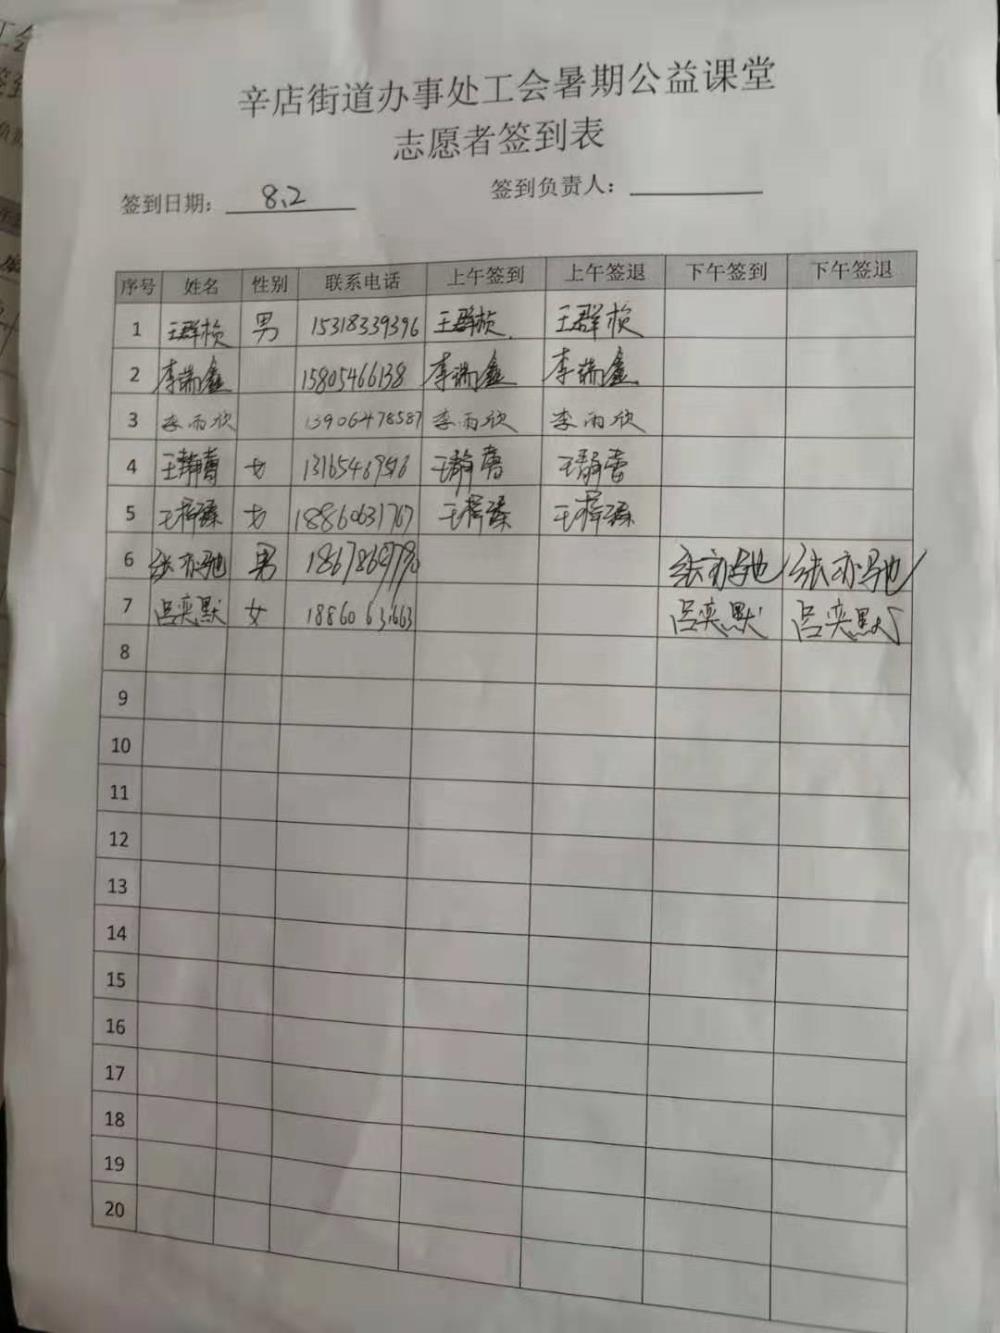 辛店街道办事处工会暑期公益课堂
志愿者签到表
签到日期： 8.2 签到负责人：
序号 姓名 性别 联系电话 上午签到 上午签退 下午签到 下午签退
1 王群桢 男 15318339396 王群桢 王群桢
2 李端鑫 15805466138 李端鑫 李端鑫
3 李雨欣 13906478587 李雨欣 李雨欣
4 王静蕾 女 王静蕾 王静蕾
5 女 18860631767
6 张亦驰 男 张亦驰 张亦驰
7 吕奕默 女 18860631663 吕奕默 吕奕默
8
9
10
11
12
13
14
15
16
17
18
19
20